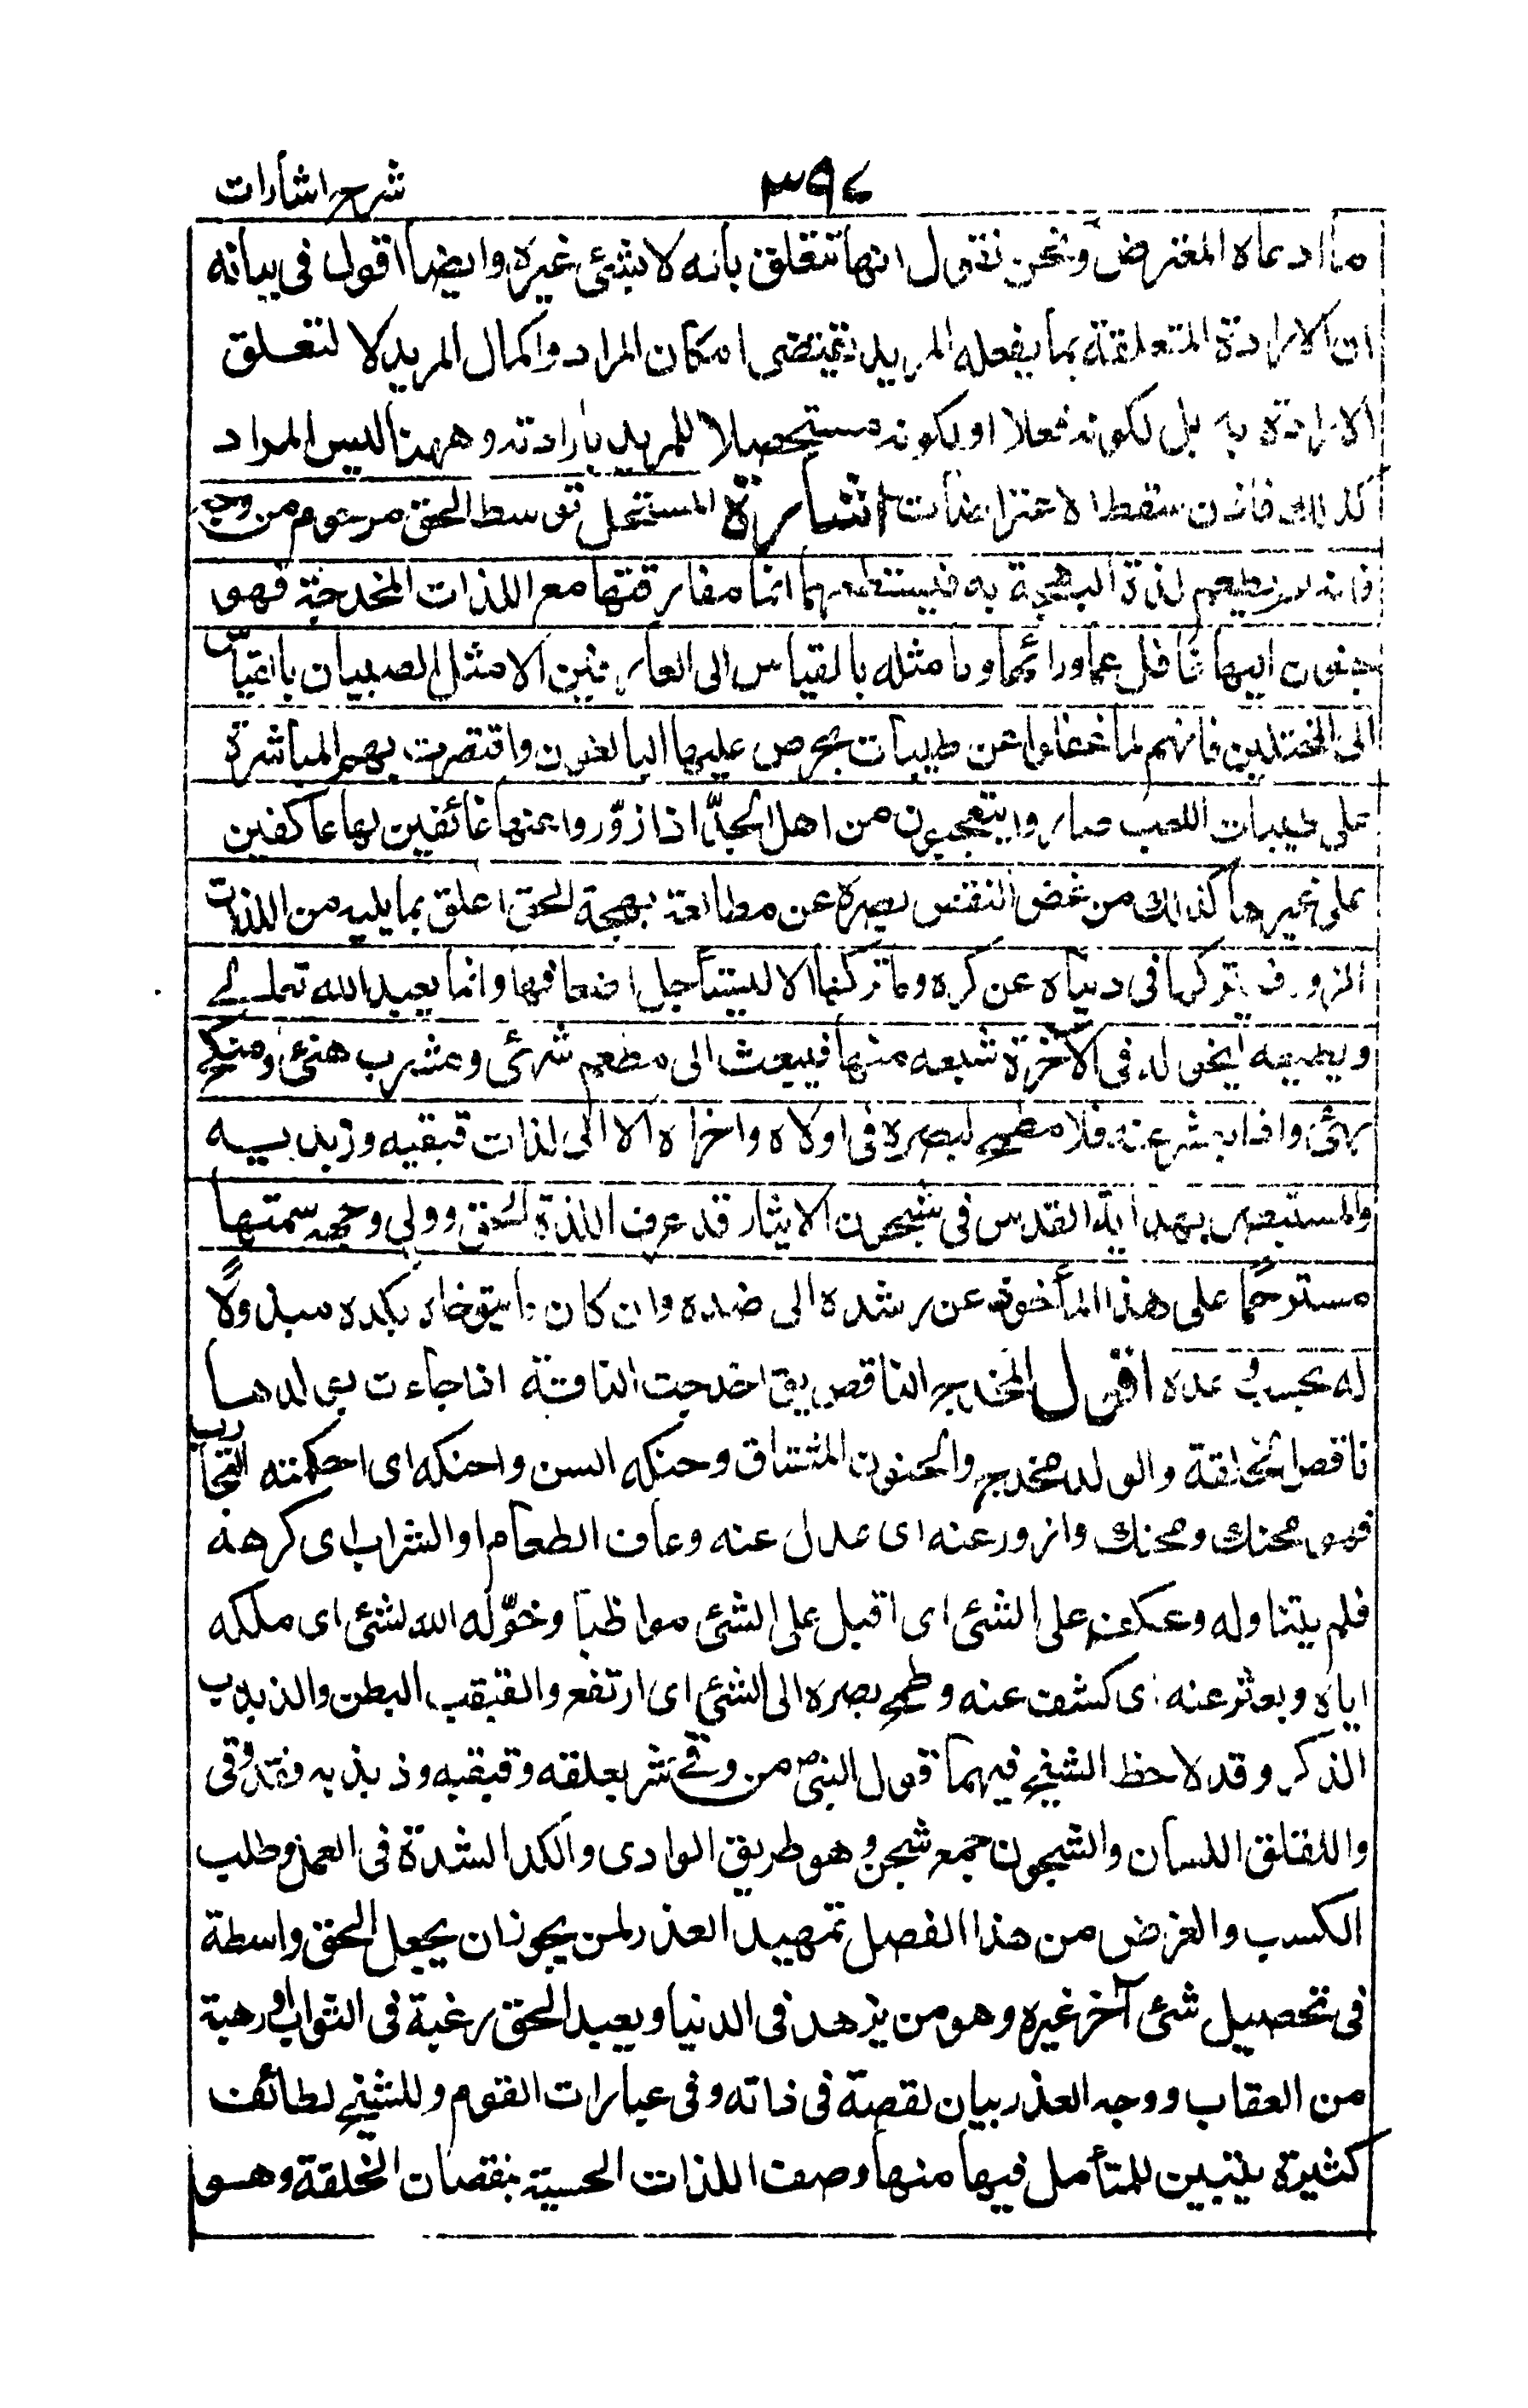 شرح اشارات ٣٩٤
ما ادعاه المغترض ونحن نقول انها تتعلق بانه لا بشئ غيره وايضا اقول فى بيانه
ان الارادة المتعلقة بما يفعله المريد تقتضى امكان المراد واكمال المريد لا لتعلق
الارادة به بل لكونه فعلا او لكونه مستحصلا للمريد بارادته وههنا ليس المراد
كذلك فاذن سقط الاعتراضات اشارة المستحل توسط الحق مرحوم من وجه
فانه لم يطعم لذة البهجة به فيستطعمها انما مفارقتها مع اللذات المخدجة فهو
حنون اليها غافل عما ورائها وما مثله بالقياس الى العارفين الا مثل الصبيان بالقياس
الى المحتنكين فانهم لما غفلوا عن طيبات يحرص عليها البالغون واقتصرت بهم المباشرة
على طيبات اللعب صاروا يتعجبون من اهل الجدّ اذا ازوّروا عنها عائفين لها عاكفين
على غيرها كذلك من غض النقص بصره عن مطالعة بهجة الحق اعلق بما يليه من اللذات
الزور فتركها فى دنياه عن كره وما تركها الا ليستأجل اضعافها وانما يعبد الله تعالى
ويطيعه ليخوله فى الآخرة شبعه منها فيبعث الى مطعم شهئ ومشرب هنئ ومنكح
بهئ واذا بعثر عنه فلا مطمح لبصره فى اولاه واخراه الا الى لذات قبقبه وذبذبه
والمستبصر بهداية القدس فى شجون الايثار قد عرف اللذة الحق وولى وجهه سمتها
مسترحمًا على هذا المأخوذ عن رشده الى ضده وان كان ما يتوخاه بكده مبذولًا
له بحسب وعده اقول المخدج الناقص يق اخدجت الناقة اذا جاءت بولدها
ناقص الخلقة والولد مخدج والحنون المشتاق وحنكه السن واحنكه اى احكمته التجارب
فهو محنك ومحنك وازور عنه اى عدل عنه وعاف الطعام او الشراب اى كرهه
فلم يتناوله وعكف على الشئ اى اقبل على الشئ مواظبا وخوّله الله لشئ اى ملكه
اياه وبعثر عنه اى كشف عنه وطمح بصره الى الشئ اى ارتفع والقبقب البطن والذبذب
الذكر وقد لاحظ الشيخ فيهما قول النبى ص من وقى شر بعلقه وقبقبه وذبذبه فقد وقى
واللقلق اللسان والشجون جمع شجن وهو طريق الوادى والكد الشدة فى العمل وطلب
الكسب والغرض من هذا الفصل تمهيد العذر لمن يجوز ان يجعل الحق واسطة
فى تحصيل شئ آخر غيره وهو من يزهد فى الدنيا ويعبد الحق رغبة فى الثواب او رهبة
من العقاب ووجه العذر بيان لقصة فى ذاته وفى عبارات القوم وللشيخ لطائف
كثيرة يتبين للمتأمل فيها منها وصف اللذات الحسية بنقصان الخلقة وهو